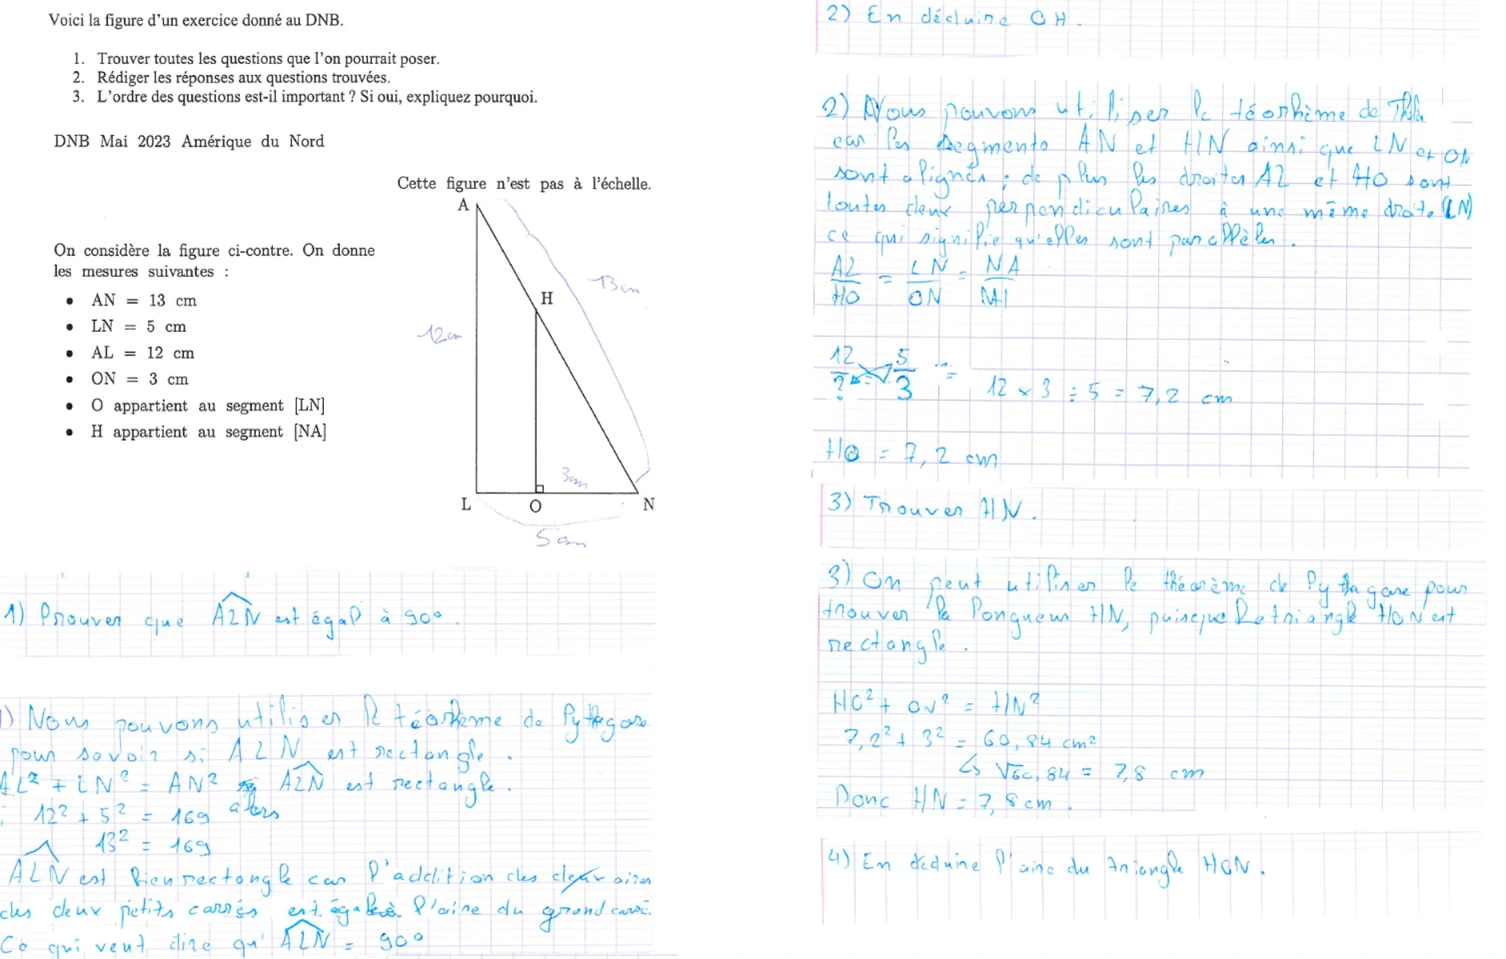 Voici la figure d'un exercice donné au DNB.
1. Trouver toutes les questions que l'on pourrait poser.
2. Rédiger les réponses aux questions trouvées.
3. L'ordre des questions est-il important ? Si oui, expliquez pourquoi.
DNB Mai 2023 Amérique du Nord
Cette figure n'est pas à l'échelle.
On considère la figure ci-contre. On donne
les mesures suivantes :
• AN = 13 cm
• LN = 5 cm
• AL = 12 cm
• ON = 3 cm
• O appartient au segment [LN]
• H appartient au segment [NA]
A
13cm
H
12cm
3cm
L
O
N
5cm
1) Prouver que ALN est égal à 90°.
1) Nous pouvons utiliser le téorhème de Pythagore
pour savoir si ALN est rectangle.
AL² + LN² = AN² ALN est rectangle.
12² + 5² = 169 alors
13² = 169
ALN est bien rectangle car l'addition des deux aires
des deux petits carrés est égale à l'aire du grand carré.
Ce qui veut dire qu' ALN = 90°
2) En déduire OH.
2) Nous pouvons utiliser le téorhème de
car les segments AN et HN ainsi que LN et ON
sont alignés ; de plus les droites AL et HO sont
toutes deux perpendiculaires à une même droite (LN)
ce qui signifie qu'elles sont parallèles.
AL/HO = LN/ON = NA/NH
12/? = 5/3 = 12 × 3 ÷ 5 = 7,2 cm
HO = 7,2 cm
3) Trouver HN.
3) On peut utiliser le théorème de Pythagore pour
trouver la longueur HN, puisque le triangle HON est
rectangle.
HO² + ON² = HN²
7,2² + 3² = 60,84 cm²
↳ √60,84 = 7,8 cm
Donc HN = 7,8 cm.
4) En déduire l'aire du triangle HON.